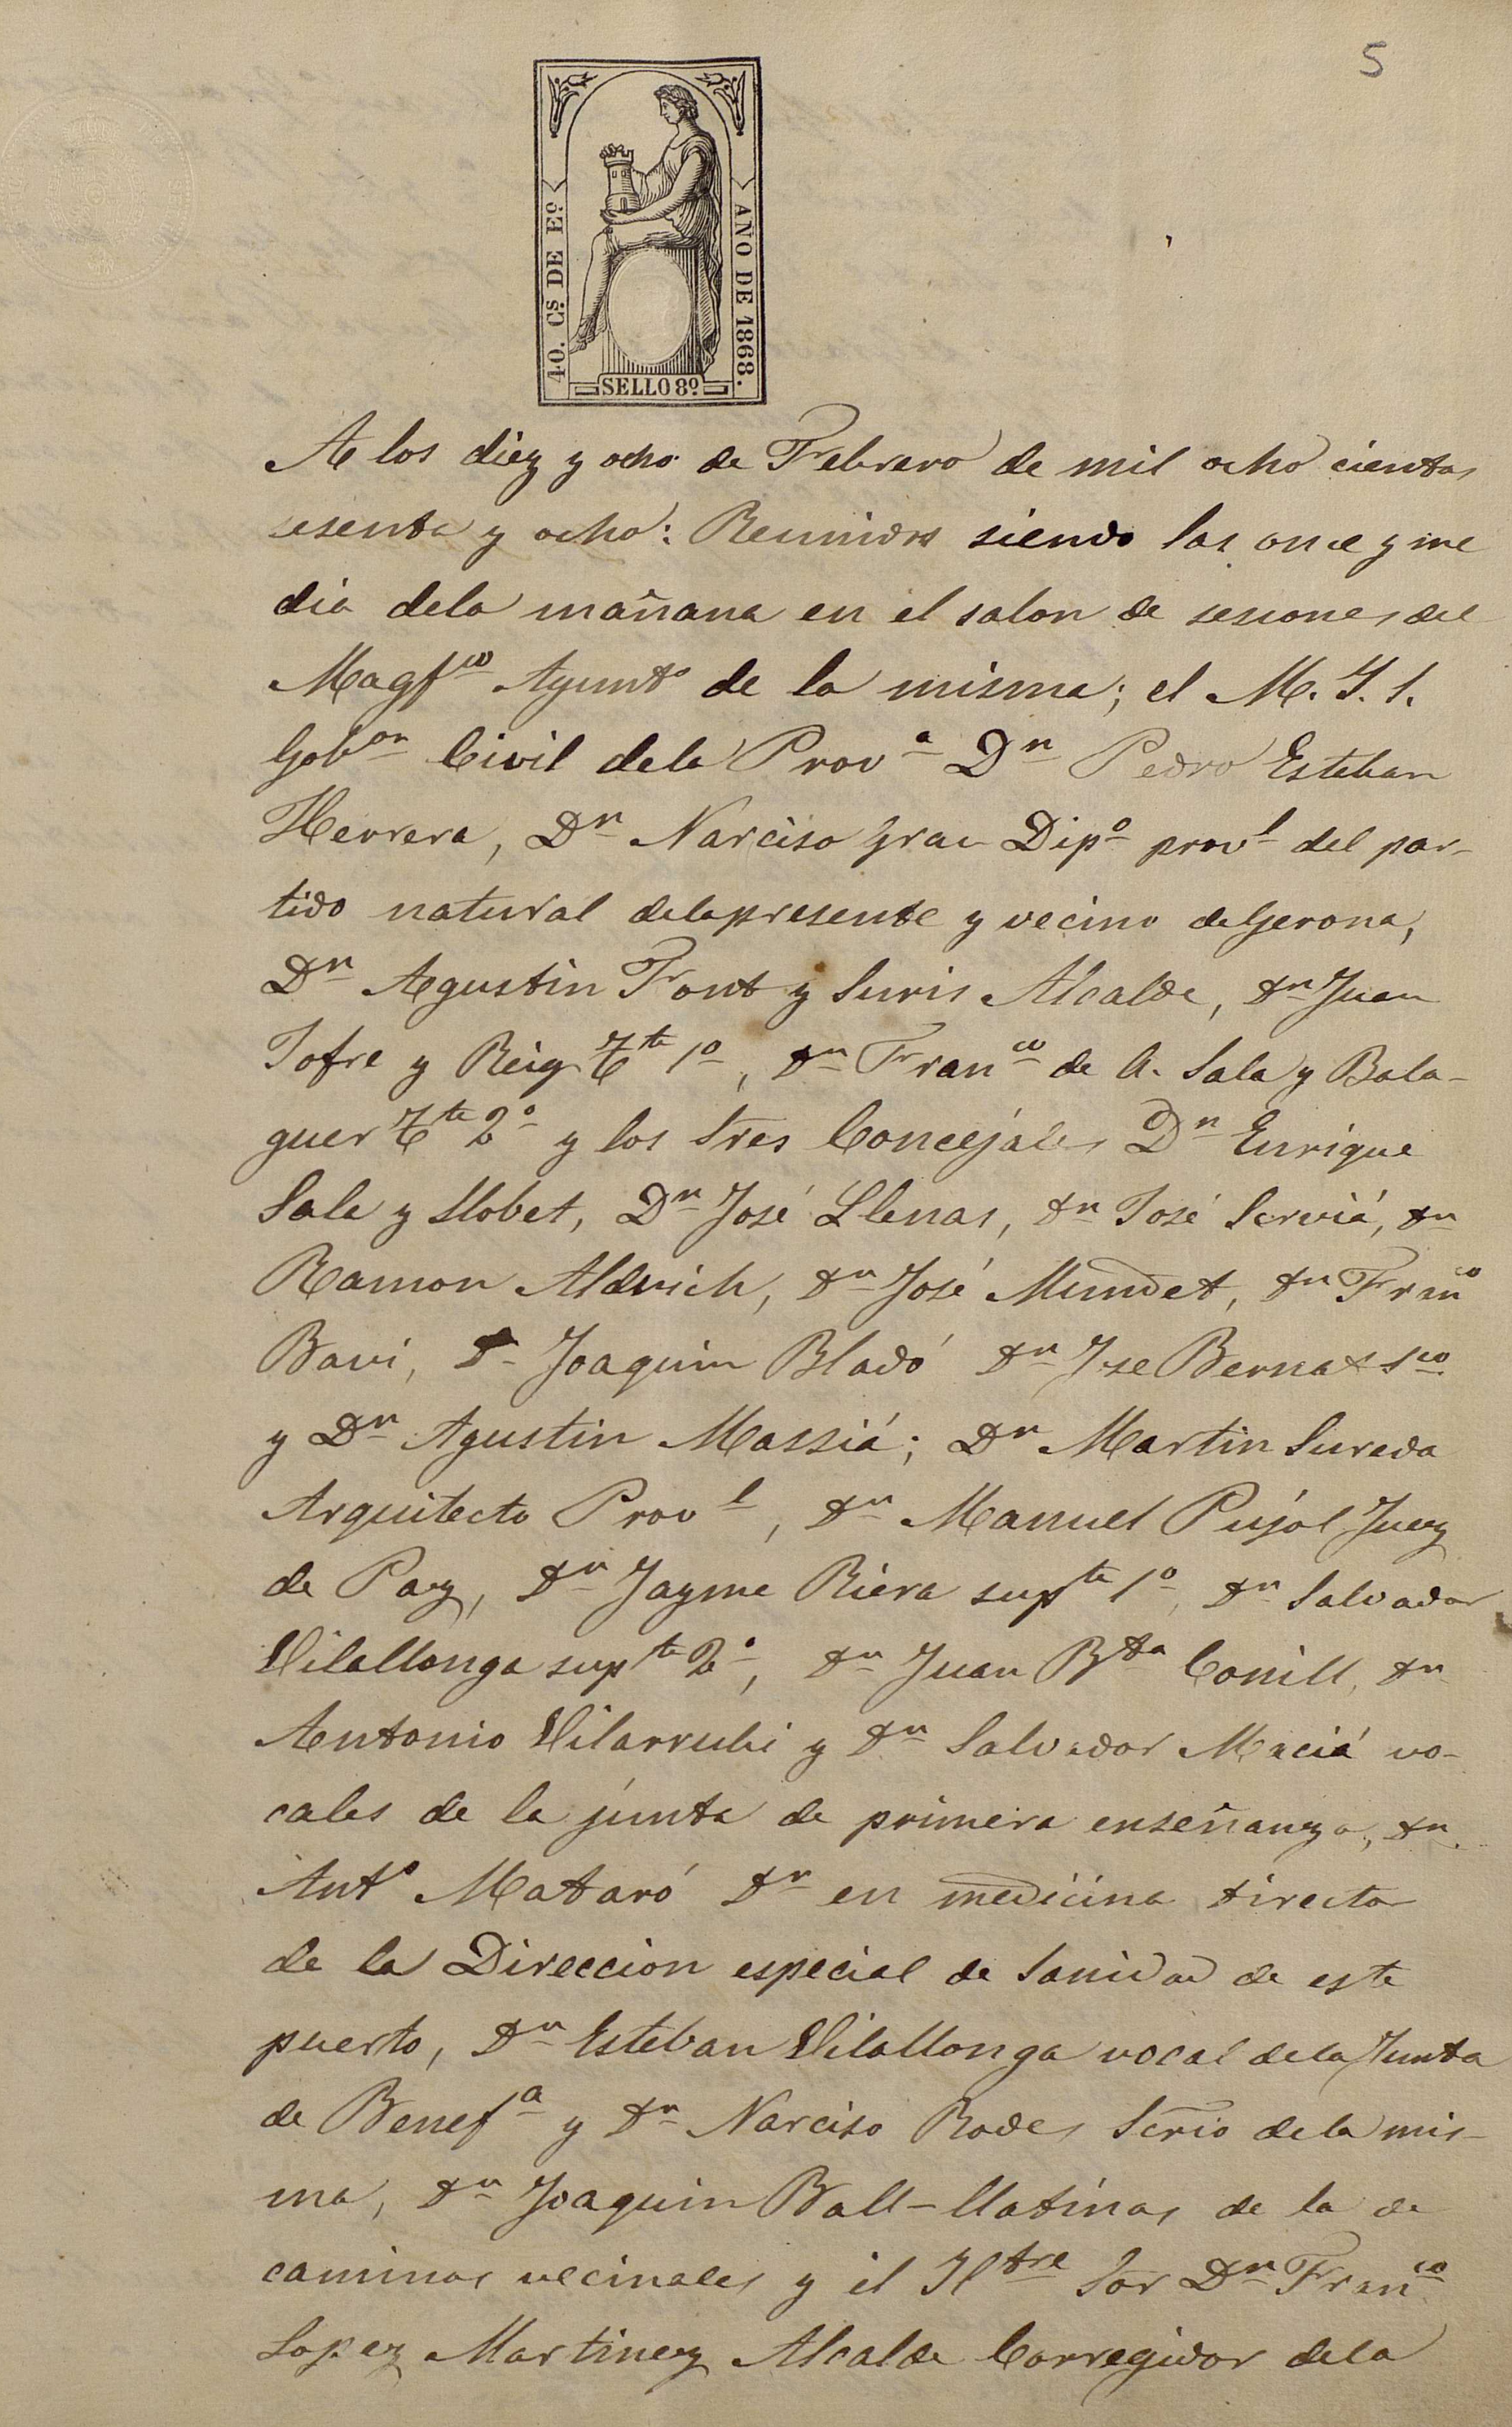 5
40. Cs. DE Eº.
AÑO DE 1868.
SELLO 8º
A los diez y ocho de Febrero de mil ocho cientos
sesenta y ocho: Reunidos siendo las once y me
dia dela mañana en el salon de sesiones del
Magfco Ayunto de la misma; el M. Y. S.
Gobor Civil dela Prova Dn Pedro Esteban
Herrera, Dn Narciso Grau Dipo provl del par-
tido natural dela presente y vecino de Gerona,
Dn Agustin Font y Suris Alcalde, Dn Juan
Jofre y Reig Tte 1º, Dn Franco de A. Sala y Bala-
guer Tte 2º y los Sres Concejales Dn Enrique
Sala y Llobet, Dn José Llenas, Dn José Serviá, Dn
Ramon Aldrich, Dn José Mundet, Dn Franco
Bavi, D Joaquin Bladó Dn Jse Bernat Sco
y Dn Agustin Massiá; Dn Martin Sureda
Arquitecto Provl, Dn Manuel Pujol Juez
de Paz, Dn Jayme Riera supte 1º, Dn Salvador
Vilallonga supte 2º, Dn Juan Bta Conill, Dn
Antonio Vilarrubi y Dn Salvador Maciá vo-
cales de la junta de primera enseñanza, Dn
Anto Mataró Dr en medicina director
de la Direccion especial de Sanidad de este
puerto, Dn Esteban Vilallonga vocal dela Junta
de Benefa y Dn Narciso Rodes Scrio dela mis-
ma, Dn Joaquin Ball-llatinas de la de
caminos vecinales y el Yltre Sor Dn Franco
Lopez Martinez Alcalde Corregidor dela